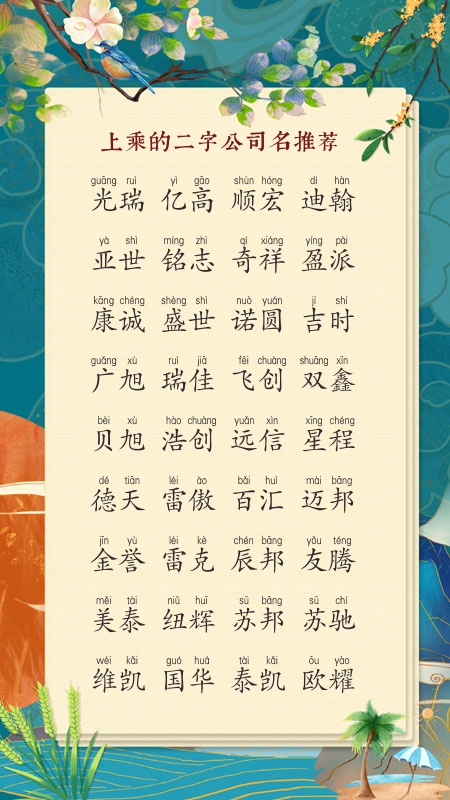 上乘的二字公司名推荐
guāng ruì yì gāo shùn hóng dí hàn
光瑞 亿高 顺宏 迪翰
yà shì míng zhì qí xiáng yíng pài
亚世 铭志 奇祥 盈派
kāng chéng shèng shì nuò yuán jí shí
康诚 盛世 诺圆 吉时
guǎng xù ruì jiā fēi chuàng shuāng xīn
广旭 瑞佳 飞创 双鑫
bèi xù hào chuàng yuǎn xìn xīng chéng
贝旭 浩创 远信 星程
dé tiān léi ào bǎi huì mài bāng
德天 雷傲 百汇 迈邦
jīn yù léi kè chén bāng yǒu téng
金誉 雷克 辰邦 友腾
měi tài niǔ huī sū bāng sū chí
美泰 纽辉 苏邦 苏驰
wéi kǎi guó huá tài kǎi ōu yào
维凯 国华 泰凯 欧耀